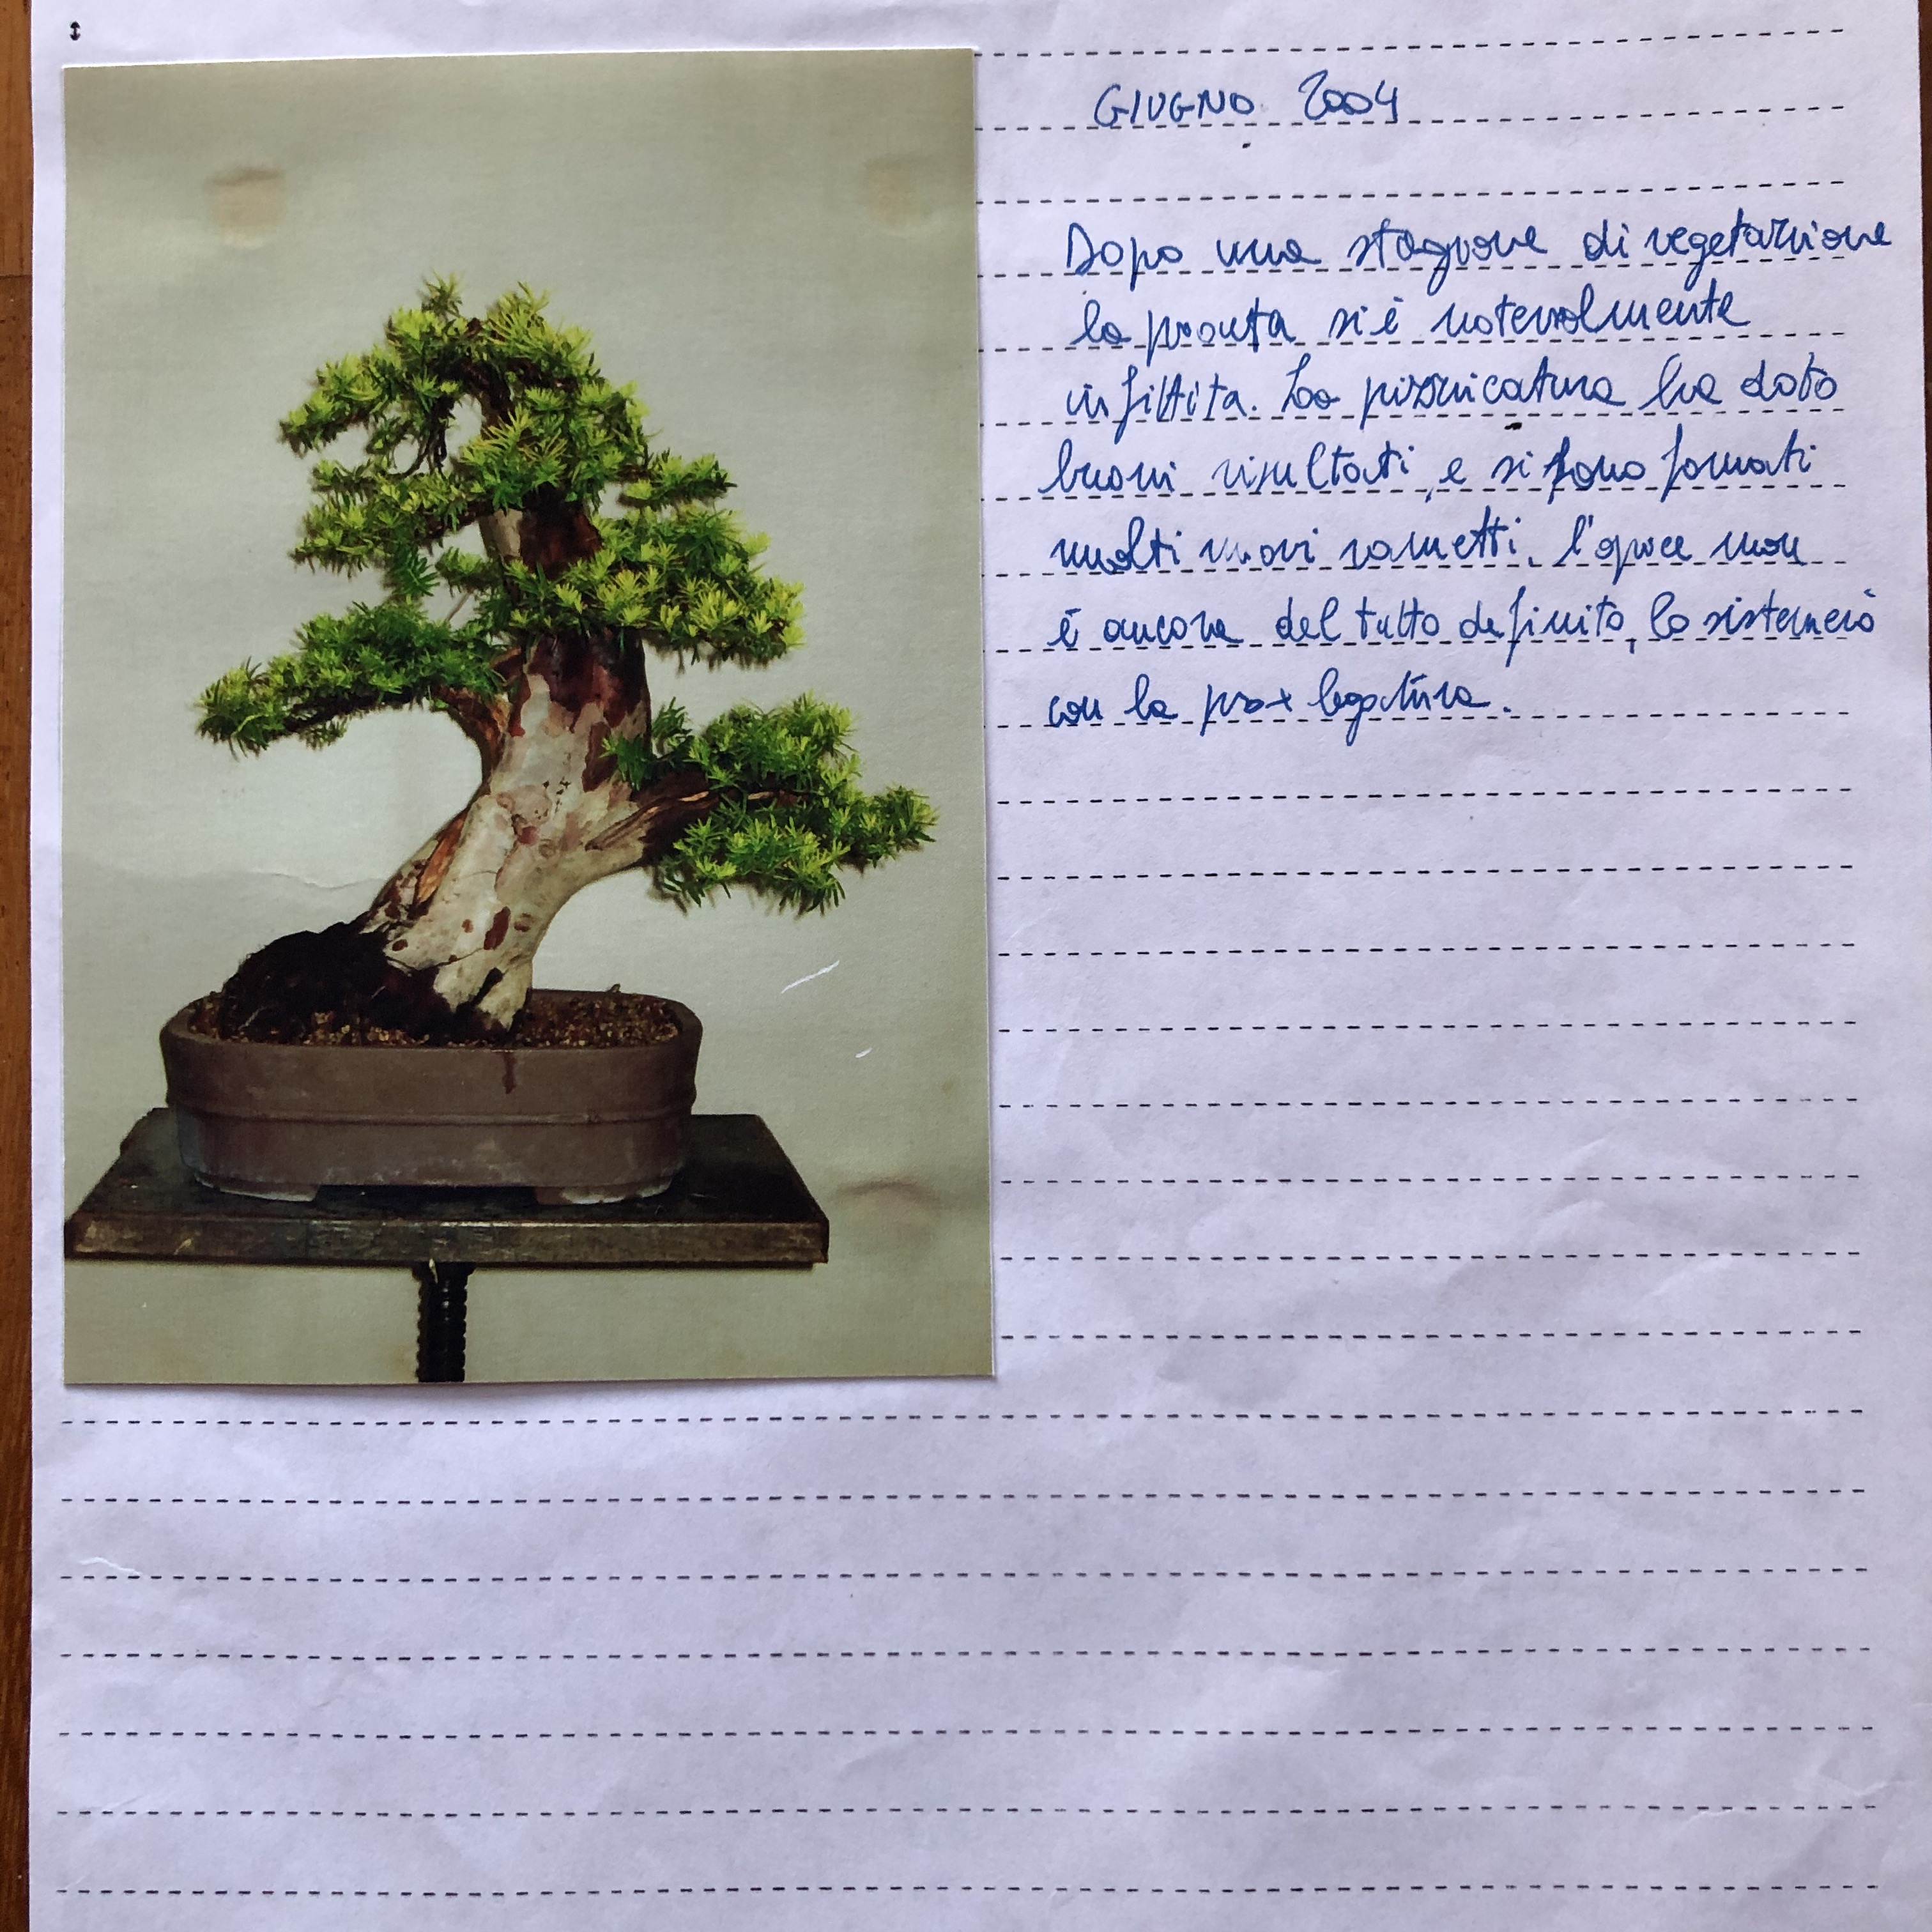 GIUGNO 2004
Dopo una stagione di vegetazione
la pianta si è notevolmente
infittita. La pizzicatura ha dato
buoni risultati, e si sono formati
molti nuovi rametti. l'apice non
è ancora del tutto definito, lo sistemerò
con la prox legatura.